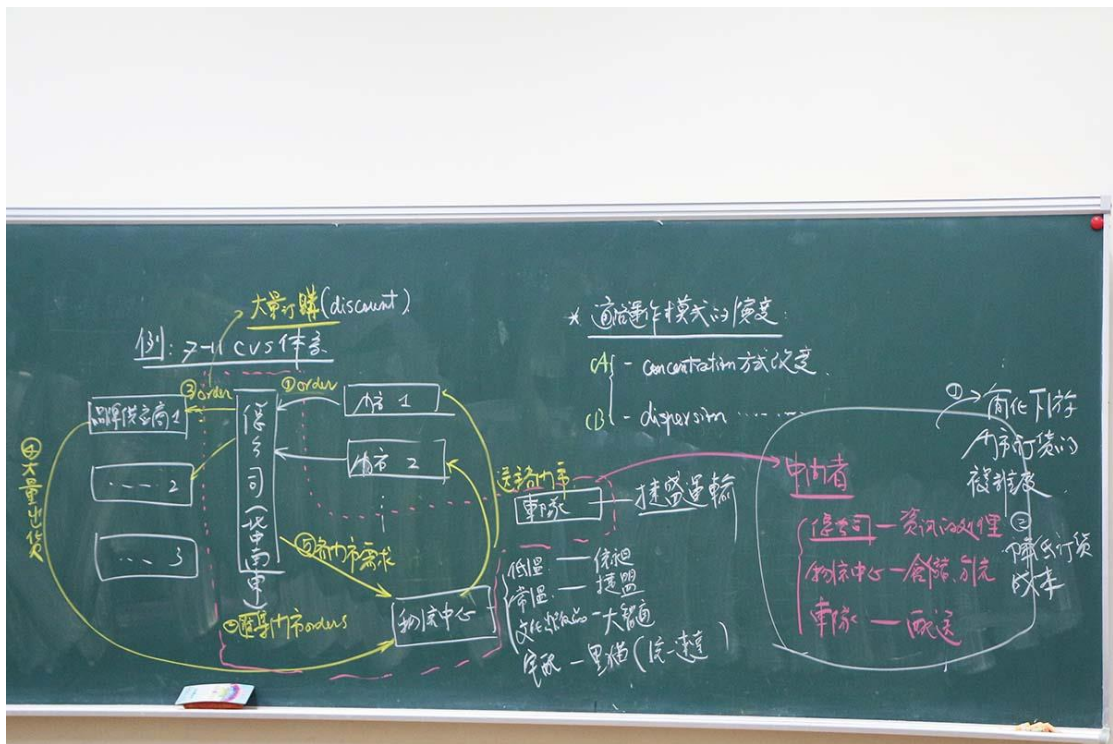 大量订購(discount)
例: 7-11 CVS体系
③order
①order
品牌供应商1
---- 2
---- 3
总公司(北中南東)
门市 1
门市 2
④大量出货
⑤各门市需求
②匯集门市orders
物流中心
送至各门市
車隊 — 捷盛運輸
低溫 — 統昶
常溫 — 捷盟
文化出版品 — 大智通
宅配 — 黑猫(统一速達)
* 通路運作模式的演變:
(A) - concentration 方式改變
(B) - dispersion ------
中间者
总公司 — 資讯的处理
物流中心 — 合儲、分流
車隊 — 配送
① 简化下游
门市订货的
複雜度
② 降低订货
成本